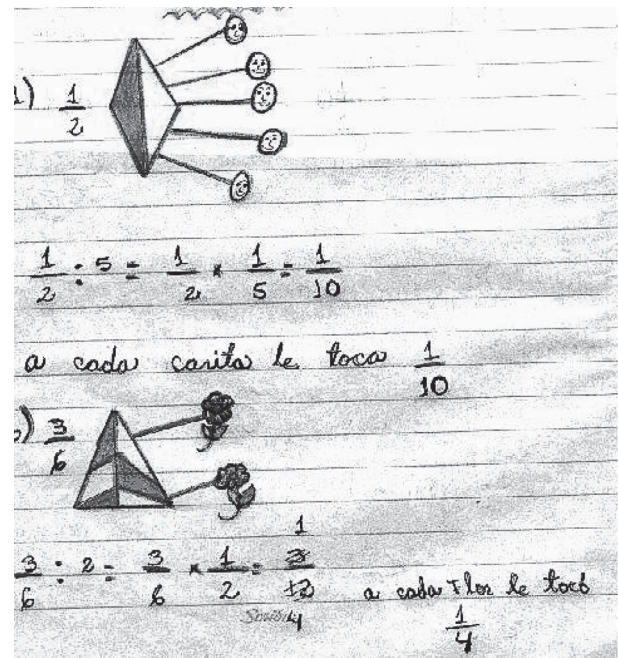 1) 1/2
1/2 : 5 = 1/2 × 1/5 = 1/10
a cada carita le toca 1/10
) 3/6
3/6 : 2 = 3/6 × 1/2 = 3/12 1/4
a cada Flor le tocó 1/4